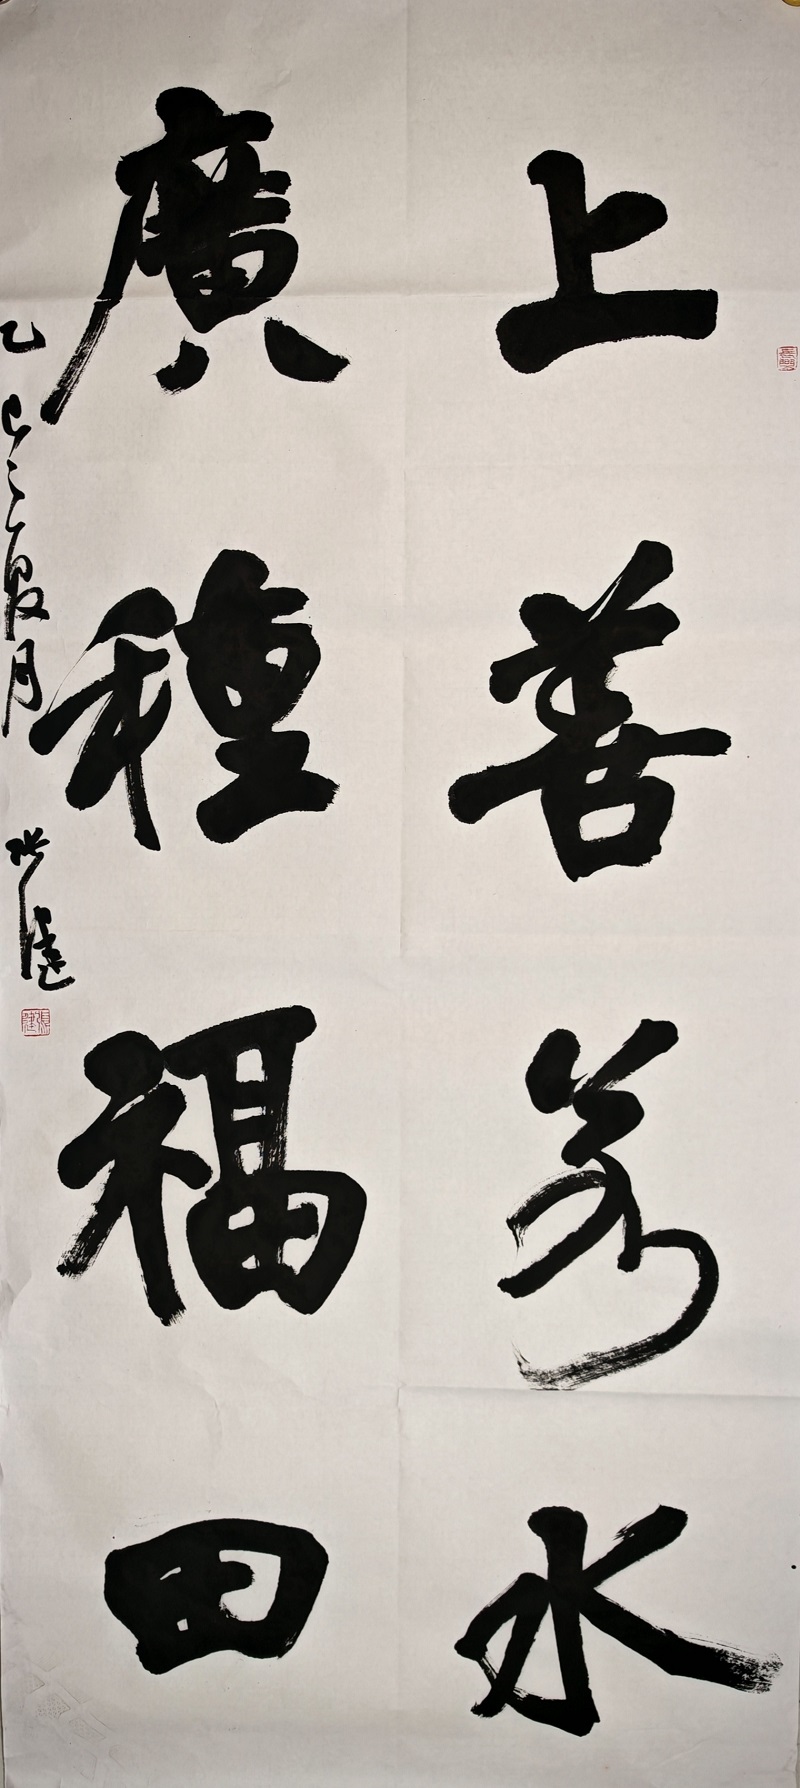 上善若水
廣種福田
乙巳之夏月